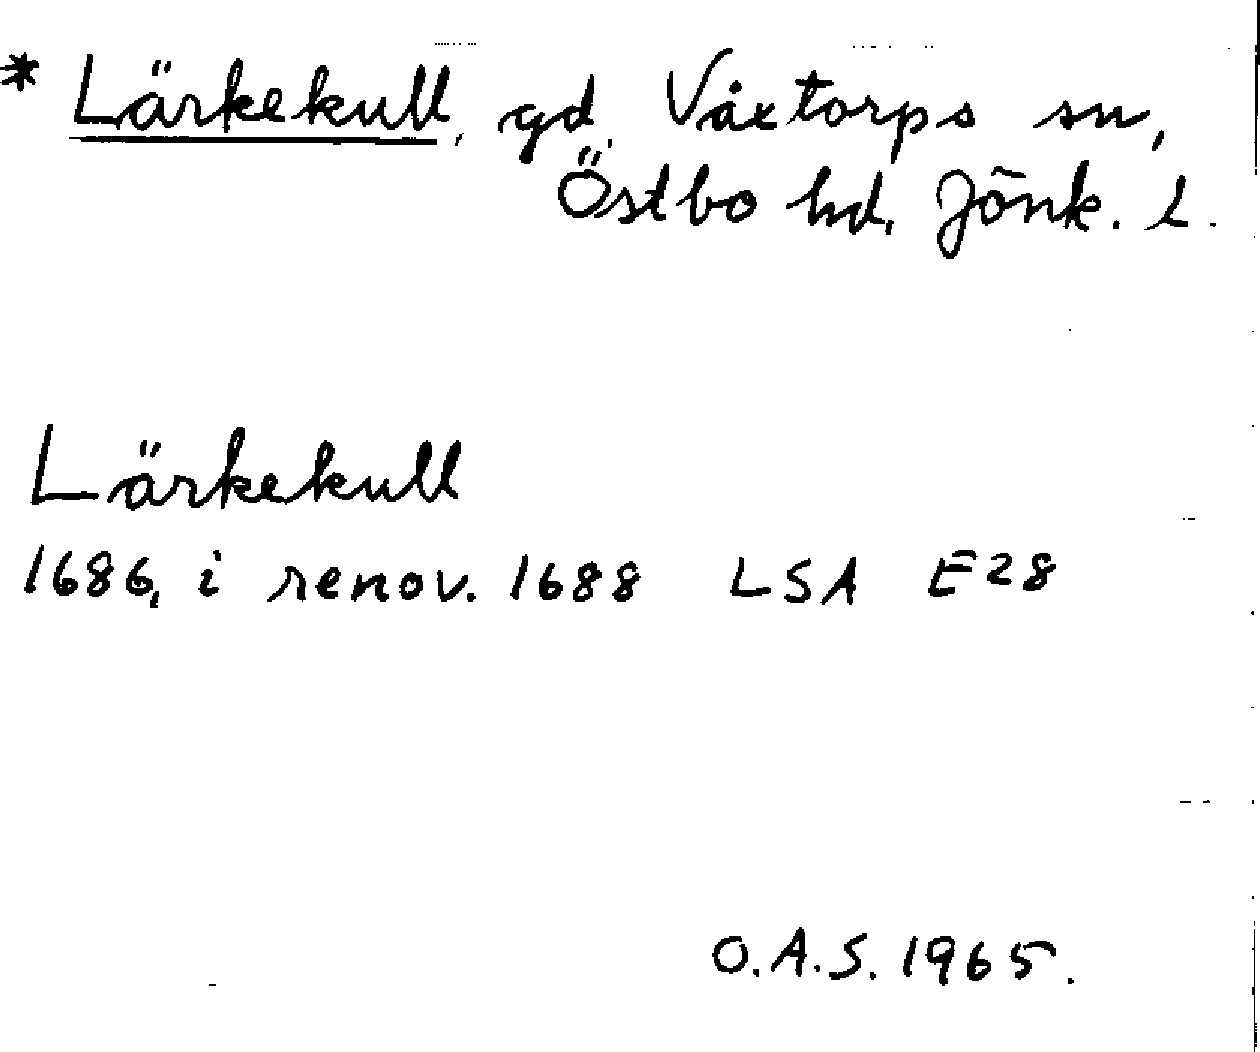 * Lärkekull, gd, Våxtorps sn,
Östbo hd, Jönk. L.
Lärkekull
1686, i renov. 1688 LSA E28
O.A.S. 1965.